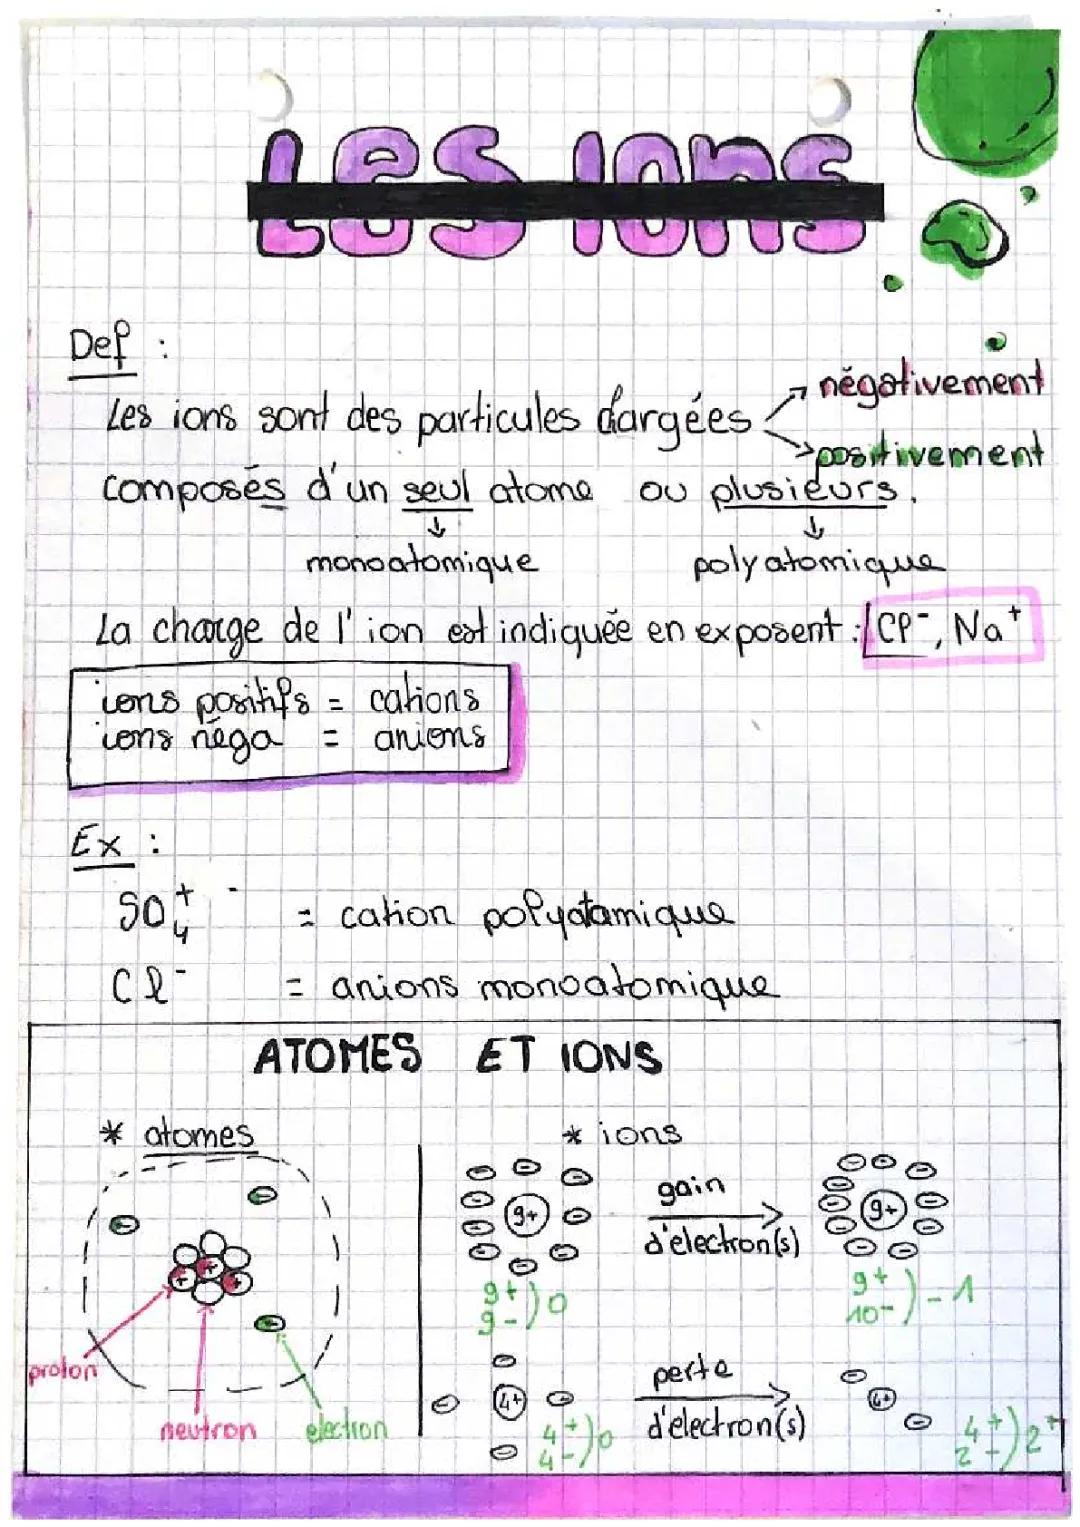 Les Ions
Def :
négativement
Les ions sont des particules chargées
positivement
composés d'un seul atome ou plusieurs.
monoatomique
polyatomique
La charge de l'ion est indiquée en exposent : Cl⁻, Na⁺
ions positifs = cations
ions néga = anions
Ex :
SO₄⁺ = cation polyatamique
Cl⁻ = anions monoatomique
ATOMES ET IONS
* atomes
* ions
9+
gain
d'électron(s)
9+
9+
9-
) 0
9+
10-
) -1
proton
neutron
electron
4+
perte
d'électron(s)
4+
4+
4-
) 0
4+
2-
) 2+